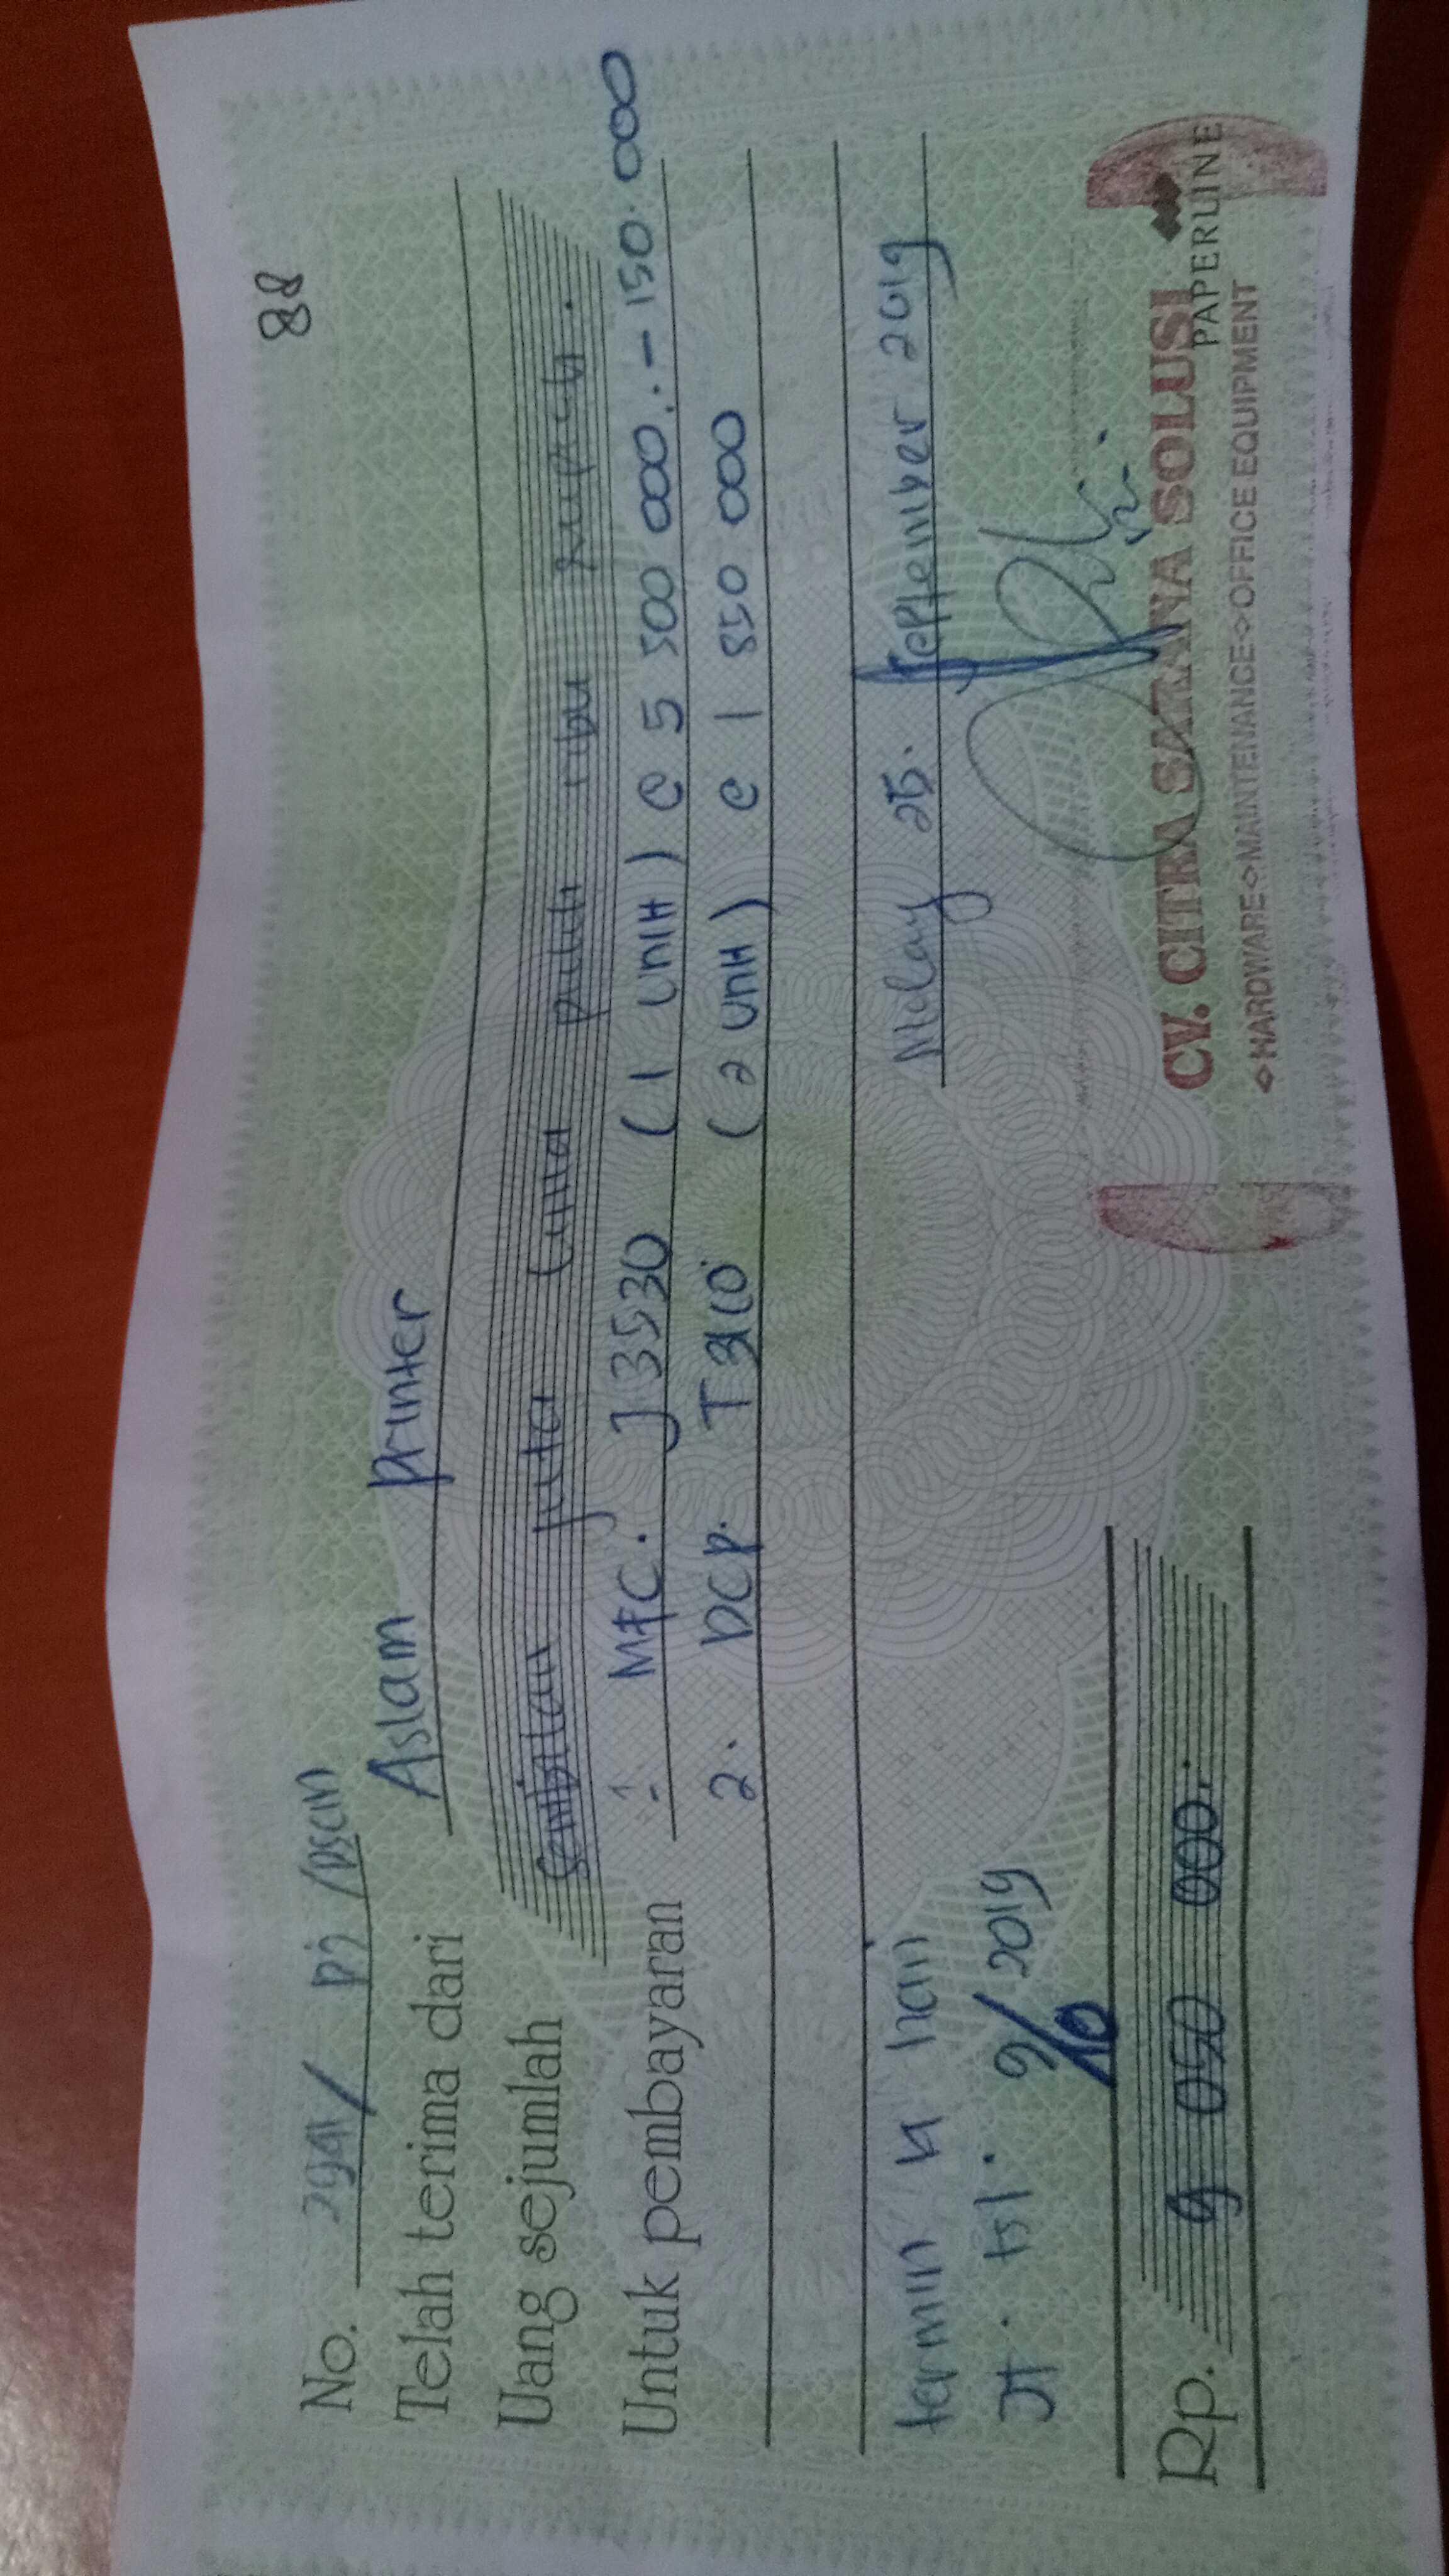 88
No. 2941 / Pj /
Telah terima dari Aslam printer
Uang sejumlah Sembilan juta Lima puluh ribu rupiah.
Untuk pembayaran : 1 MFC. J3530 (1 unit) @ 5 500 000.- 150.000
2. DCP. T310 (2 unit) @ 1 850 000
termin 14 hari
25. September 2019
JT. tgl. 9/10 2019
Rp. 9 050 000.
CV. CITRA SARANA SOLUSI
PAPERLINE
HARDWARE MAINTENANCE OFFICE EQUIPMENT